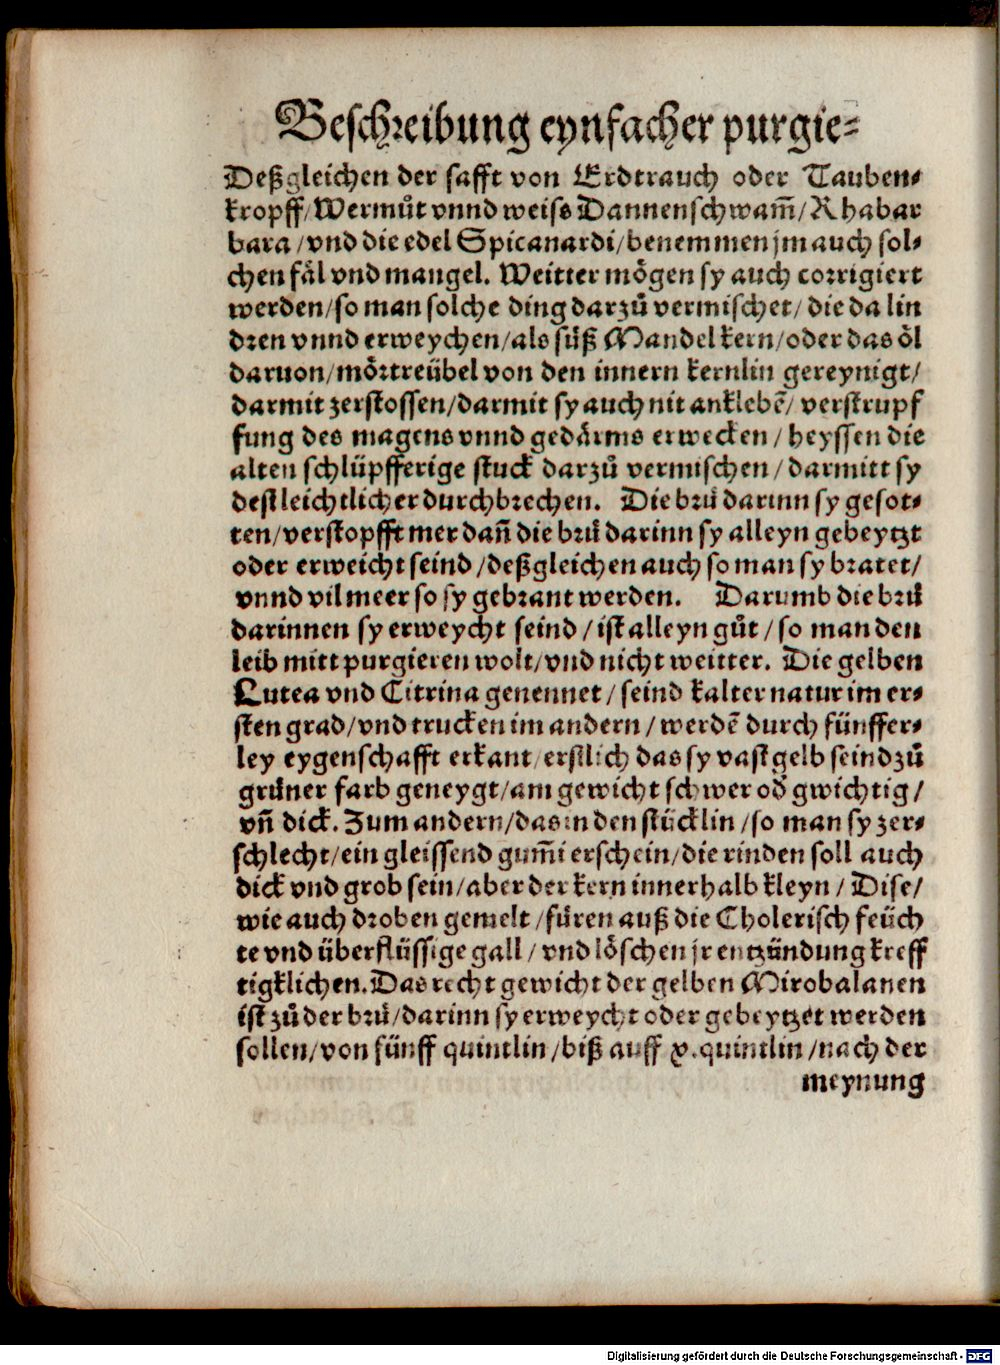 Beschreibung eynfacher purgie⸗
Deßgleichen der safft von Erdtrauch oder Tauben⸗
kropff/Wermůt vnnd weiss Dannenschwam̃/Rhabar
bara/vnd die edel Spicanardi/benemmen jm auch sol⸗
chen fäl vnd mangel. Weitter mögen sy auch corrigiert
werden/so man solche ding darzů vermischet/die da lin
dren vnnd erweychen/als süß Mandel kern/oder das öl
daruon/mörtreübel von den innern kernlin gereynigt/
darmit zerstossen/darmit sy auch nit anklebẽ/verstrupf
fung des magens vnnd gedärms erwecken/heyssen die
alten schlüpfferige stuck darzů vermischen/darmitt sy
dest leichtlicher durchbrechen. Die brů darinn sy gesot⸗
ten/verstopfft mer dañ die brů darinn sy alleyn gebeytzt
oder erweicht seind/deßgleichen auch so man sy bratet/
vnnd vil meer so sy gebrant werden. Darumb die brů
darinnen sy erweycht seind/ist alleyn gůt/so man den
leib mitt purgieren wolt/vnd nicht weitter. Die gelben
Lutea vnd Citrina genennet/seind kalter natur im er⸗
sten grad/vnd trucken im andern/werdẽ durch fünffer⸗
ley eygenschafft erkant/erstlich das sy vast gelb seind zů
grůner farb geneygt/am gewicht schwer od̉ gwichtig/
vñ dick. Zum andern/das in den stücklin/so man sy zer⸗
schlecht/ein gleissend gum̃i erschein/die rinden soll auch
dick vnd grob sein/aber der kern innerhalb kleyn/Dise/
wie auch droben gemelt/füren auß die Cholerisch feüch
te vnd überflüssige gall/vnd löschen jr entzündung kreff
tigklichen. Das recht gewicht der gelben Mirobalanen
ist zů der brů/darinn sy erweycht oder gebeytzet werden
sollen/von fünff quintlin/biß auff x. quintlin/nach der
meynung
Digitalisierung gefördert durch die Deutsche Forschungsgemeinschaft - DFG